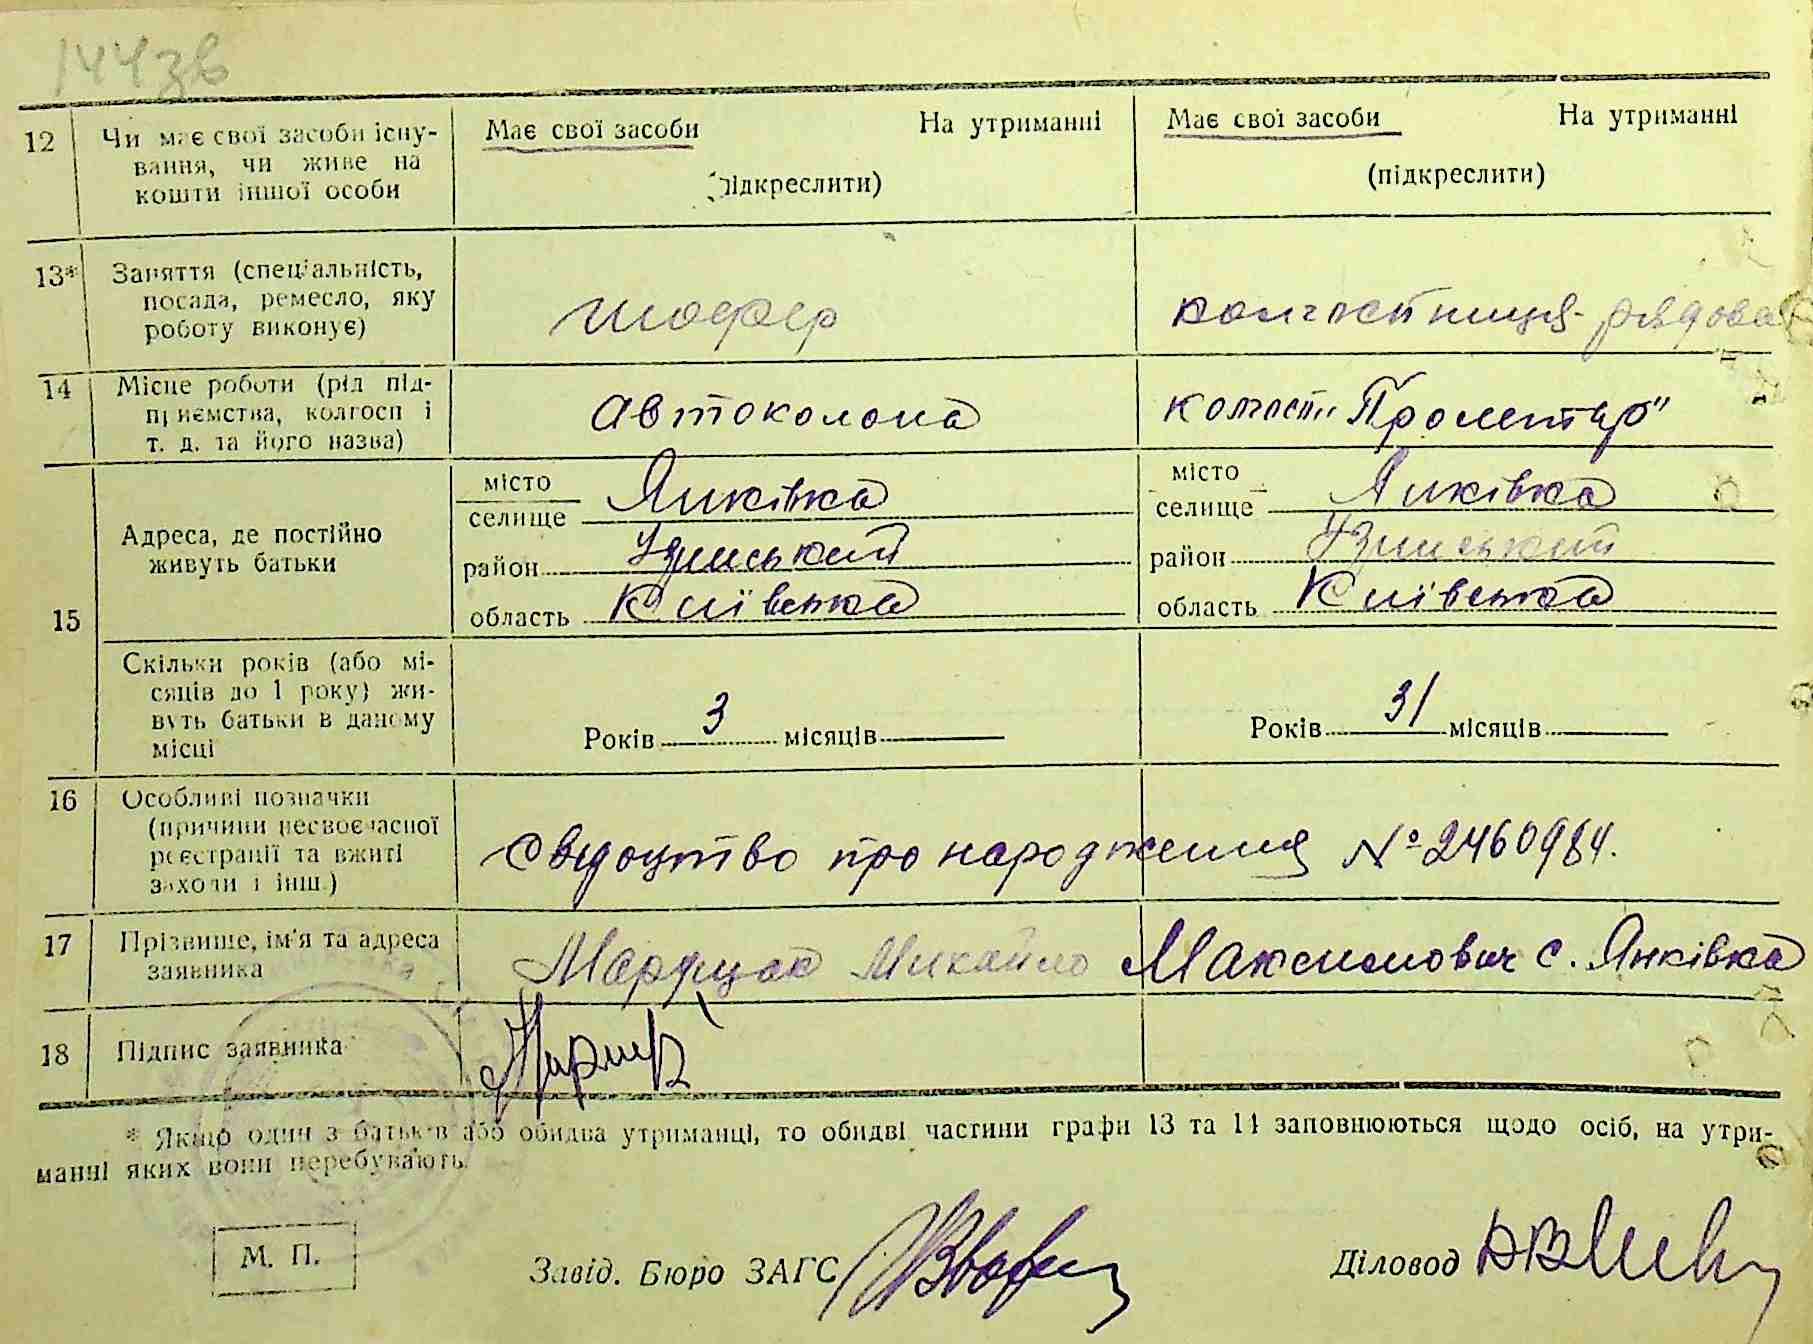 144зв
12 Чи має свої засоби існу-
вання, чи живе на
кошти іншої особи
Має свої засоби На утриманні
(підкреслити)
Має свої засоби На утриманні
(підкреслити)
13* Заняття (спеціальність,
посада, ремесло, яку
роботу виконує)
шофер
колгоспниця-рядова
14 Місце роботи (рід під-
приємства, колгосп і
т. д. та його назва)
Автоколона
колгосп „Пролетар"
15 Адреса, де постійно
живуть батьки
місто
селище Янківка
район Узинський
область Київська
місто
селище Янківка
район Узинський
область Київська
Скільки років (або мі-
сяців до 1 року) жи-
вуть батьки в даному
місці
Років 3 місяців
Років 31 місяців
16 Особливі позначки
(причини несвоєчасної
реєстрації та вжиті
заходи і інш.)
Свідоцтво про народження № 2460984.
17 Прізвище, ім'я та адреса
заявника
Михайло Максимович с. Янківка
18 Підпис заявника
* Якщо один з батьків або обидва утриманці, то обидві частини графи 13 та 14 заповнюються щодо осіб, на утри-
манні яких вони перебувають.
М. П.
Завід. Бюро ЗАГС
Діловод